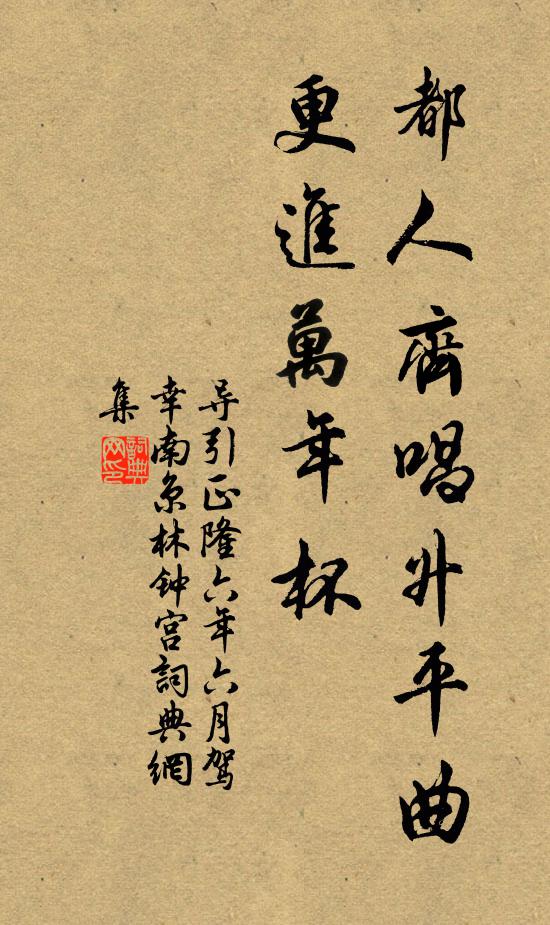 都人齊唱升平曲
更進萬年杯
导引正隆六年六月驾
幸南京林钟宫詞典網
集
詞典网印